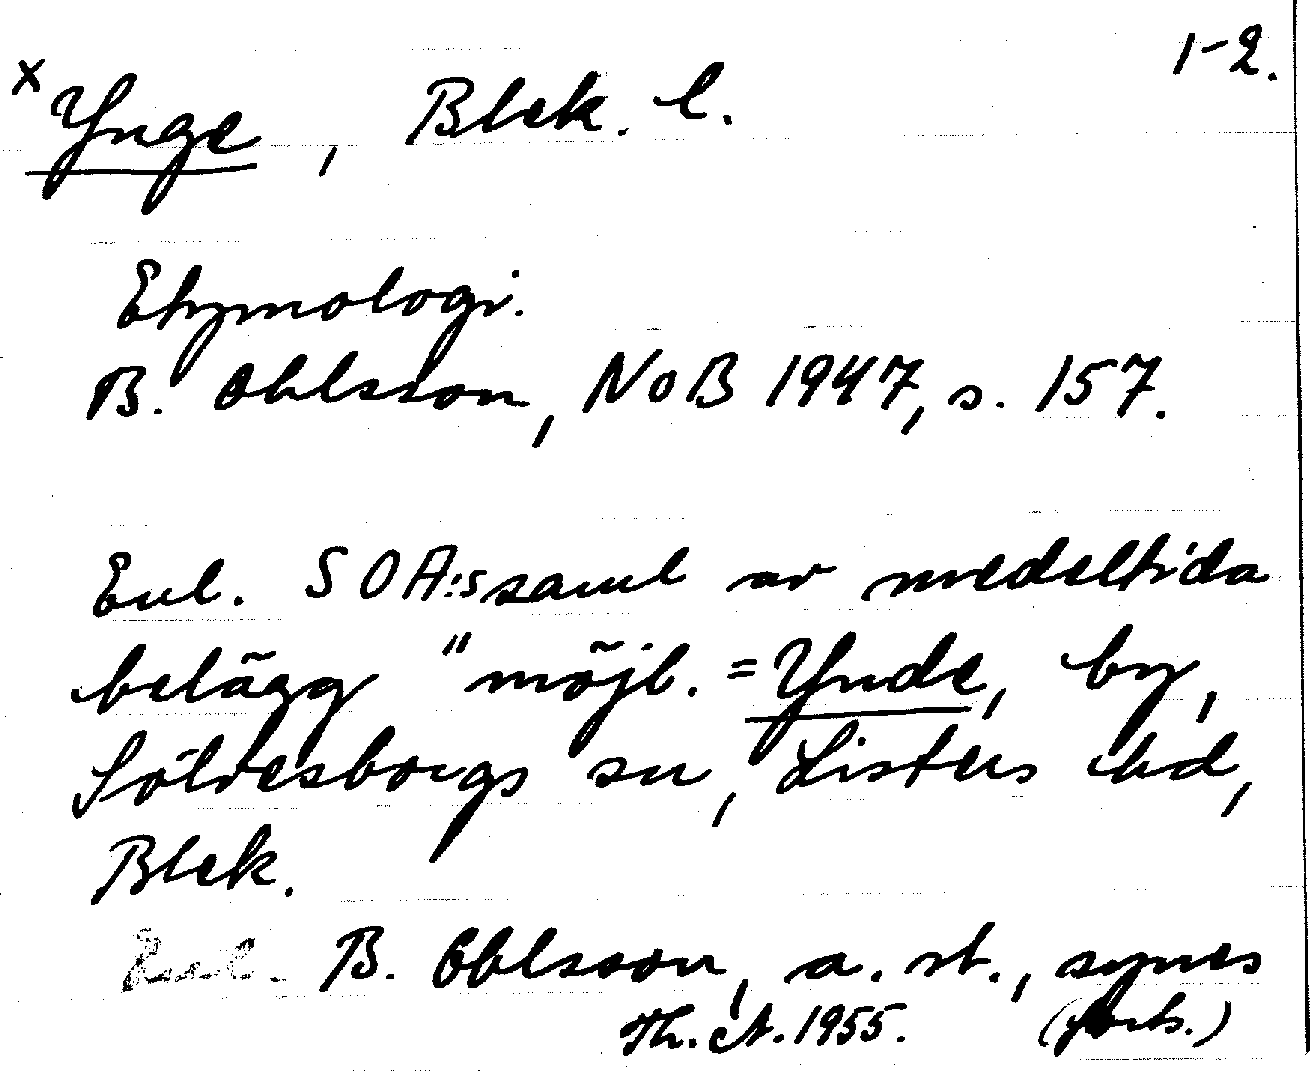 1-2.
x Ynge, Blek. l.
Etymologi.
B. Ohlsson, NoB 1947, s. 157.
Enl. SOA:s saml av medeltida
belägg "möjl. = Ynde, by,
Sölvesborgs sn, Listers hd,
Blek.
Enl. B. Ohlsson, a. st., synes
Th. A. 1955. (forts.)